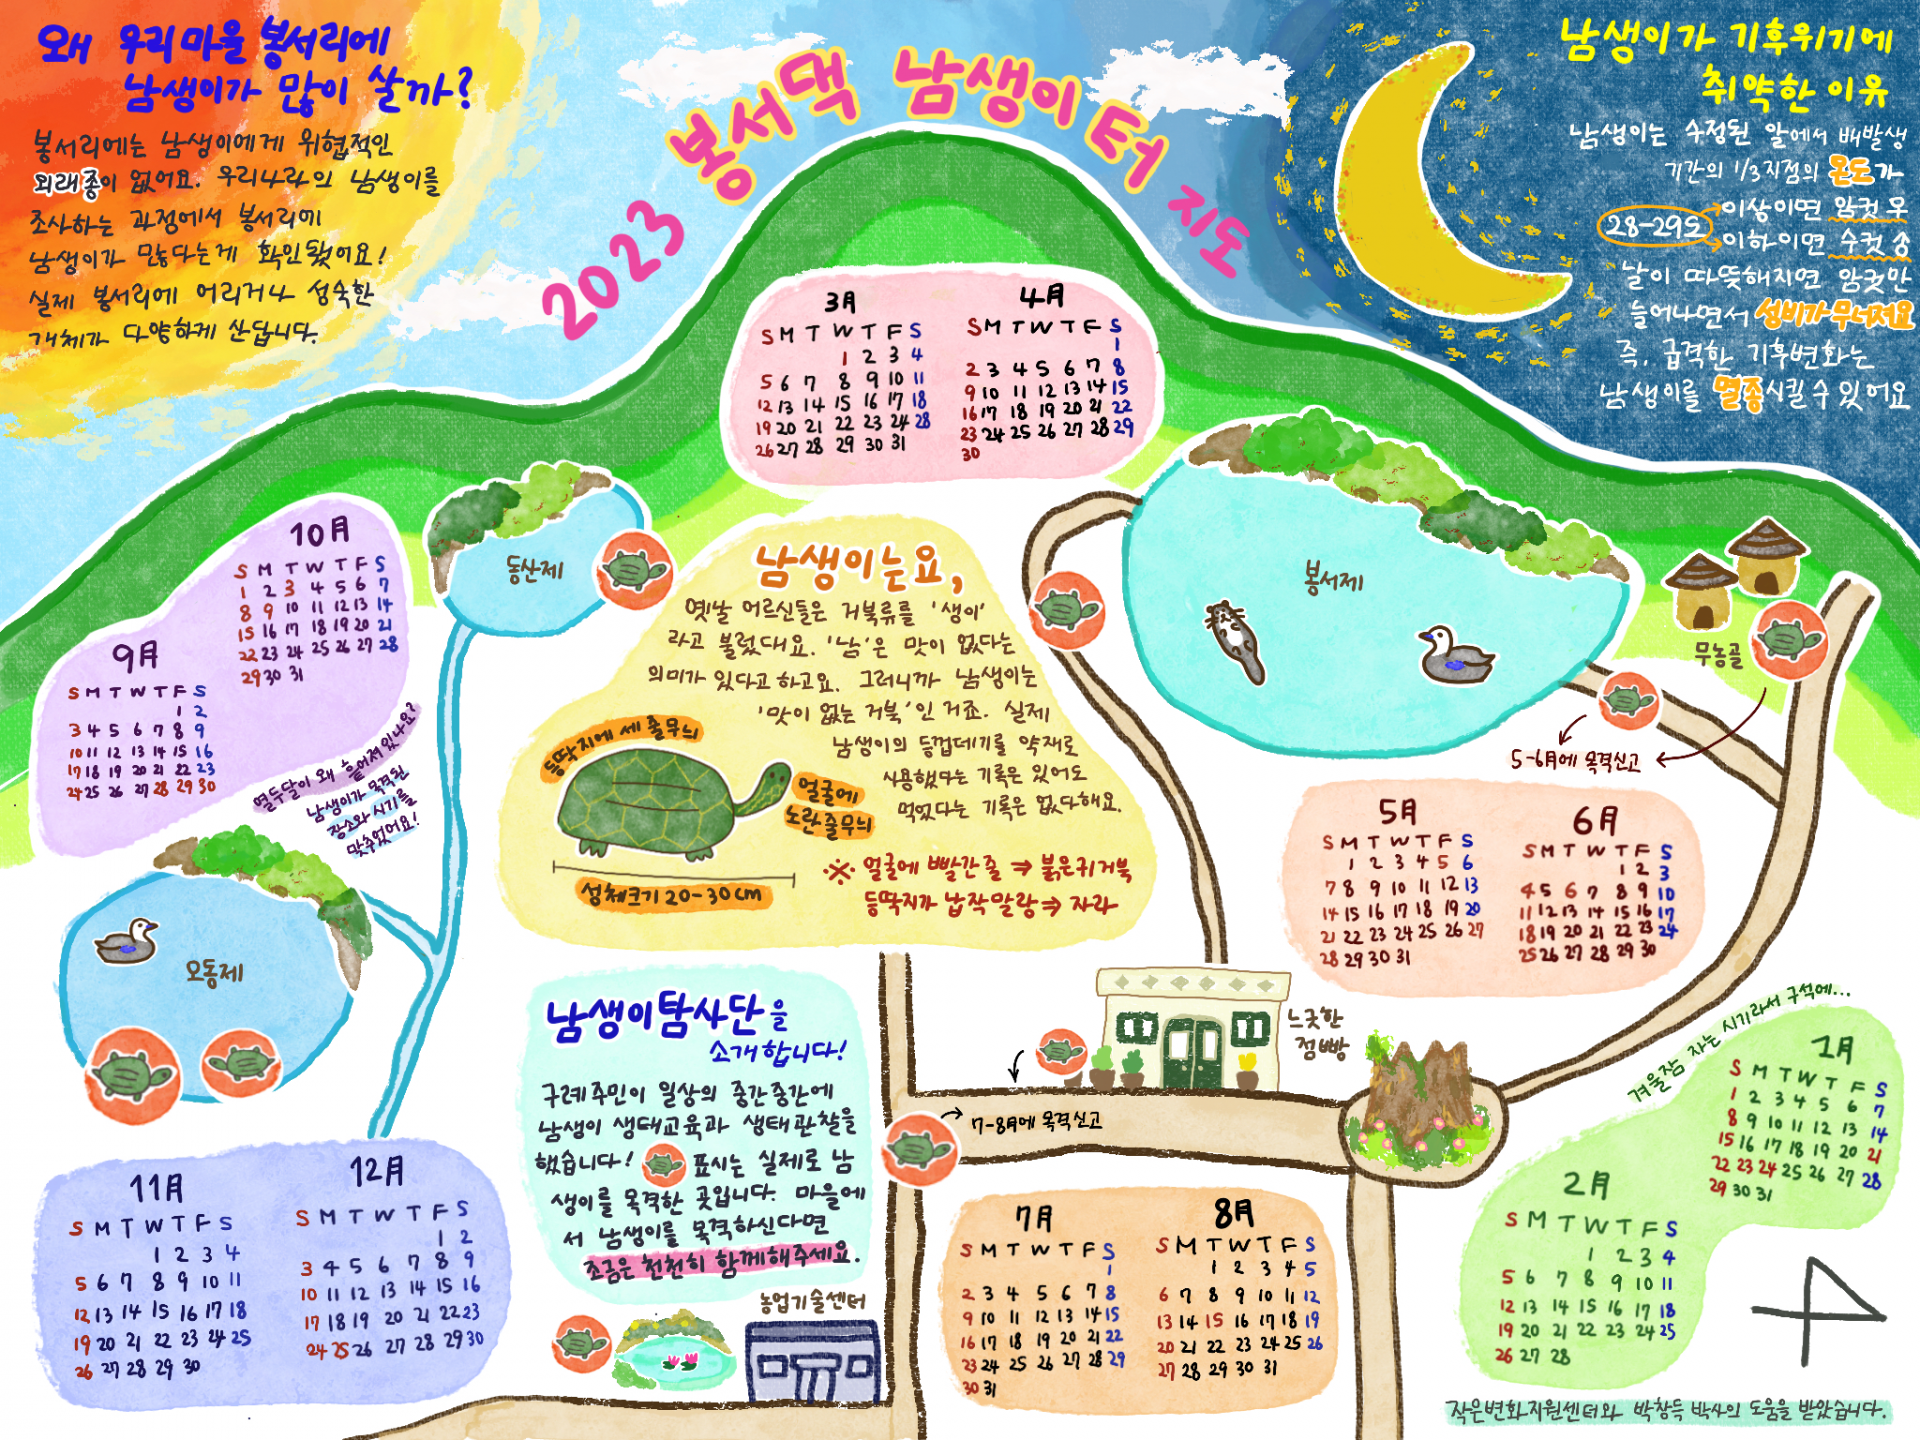 왜 우리 마을 봉서리에
남생이가 많이 살까?
봉서리에는 남생이에게 위협적인
외래종이 없어요. 우리나라의 남생이를
조사하는 과정에서 봉서리에
남생이가 많다는게 확인됐어요!
실제 봉서리에 어리거나 성숙한
개체가 다양하게 산답니다.
2023 봉서댁 남생이 터 지도
남생이가 기후위기에
취약한 이유
남생이는 수정된 알에서 배발생
기간의 1/3지점의 온도가
28-29도
이상이면 암컷 우
이하이면 수컷 송
날이 따뜻해지면 암컷만
늘어나면서 성비가 무너져요
즉, 급격한 기후변화는
남생이를 멸종시킬 수 있어요
3月
S M T W T F S
1 2 3 4
5 6 7 8 9 10 11
12 13 14 15 16 17 18
19 20 21 22 23 24 28
26 27 28 29 30 31
4月
S M T W T F S
1
2 3 4 5 6 7 8
9 10 11 12 13 14 15
16 17 18 19 20 21 22
23 24 25 26 27 28 29
30
10月
S M T W T F S
1 2 3 4 5 6 7
8 9 10 11 12 13 14
15 16 17 18 19 20 21
22 23 24 25 26 27 28
29 30 31
9月
S M T W T F S
1 2
3 4 5 6 7 8 9
10 11 12 13 14 15 16
17 18 19 20 21 22 23
24 25 26 27 28 29 30
열두달이 왜 흩어져있나요?
남생이가 목격된
장소와 시기를
맞추었어요!
동산제
남생이는요,
옛날 어르신들은 거북류를 '생이'
라고 불렀대요. '남'은 맛이 없다는
의미가 있다고 하고요. 그러니까 남생이는
'맛이 없는 거북'인 거죠. 실제
남생이의 등껍데기를 약재로
사용했다는 기록은 있어도
먹었다는 기록은 없다해요.
등딱지에 세 줄무늬
얼굴에
노란 줄무늬
성체크기 20-30cm
※ 얼굴에 빨간 줄 ⇒ 붉은귀거북
등딱지가 납작말랑 ⇒ 자라
봉서제
무농골
5-6月에 목격신고
5月
S M T W T F S
1 2 3 4 5 6
7 8 9 10 11 12 13
14 15 16 17 18 19 20
21 22 23 24 25 26 27
28 29 30 31
6月
S M T W T F S
1 2 3
4 5 6 7 8 9 10
11 12 13 14 15 16 17
18 19 20 21 22 23 24
25 26 27 28 29 30
오동제
남생이탐사단을
소개합니다!
구례주민이 일상의 중간중간에
남생이 생태교육과 생태관찰을
했습니다! 표시는 실제로 남
생이를 목격한 곳입니다. 마을에
서 남생이를 목격하신다면
조금은 천천히 함께해주세요.
느긋한
점빵
7-8月에 목격신고
겨울잠 자는 시기라서 구석에...
1月
S M T W T F S
1 2 3 4 5 6 7
8 9 10 11 12 13 14
15 16 17 18 19 20 21
22 23 24 25 26 27 28
29 30 31
2月
S M T W T F S
1 2 3 4
5 6 7 8 9 10 11
12 13 14 15 16 17 18
19 20 21 22 23 24 25
26 27 28
11月
S M T W T F S
1 2 3 4
5 6 7 8 9 10 11
12 13 14 15 16 17 18
19 20 21 22 23 24 25
26 27 28 29 30
12月
S M T W T F S
1 2
3 4 5 6 7 8 9
10 11 12 13 14 15 16
17 18 19 20 21 22 23
24 25 26 27 28 29 30
농업기술센터
7月
S M T W T F S
1
2 3 4 5 6 7 8
9 10 11 12 13 14 15
16 17 18 19 20 21 22
23 24 25 26 27 28 29
30 31
8月
S M T W T F S
1 2 3 4 5
6 7 8 9 10 11 12
13 14 15 16 17 18 19
20 21 22 23 24 25 26
27 28 29 30 31
작은변화지원센터와 박창득 박사의 도움을 받았습니다.